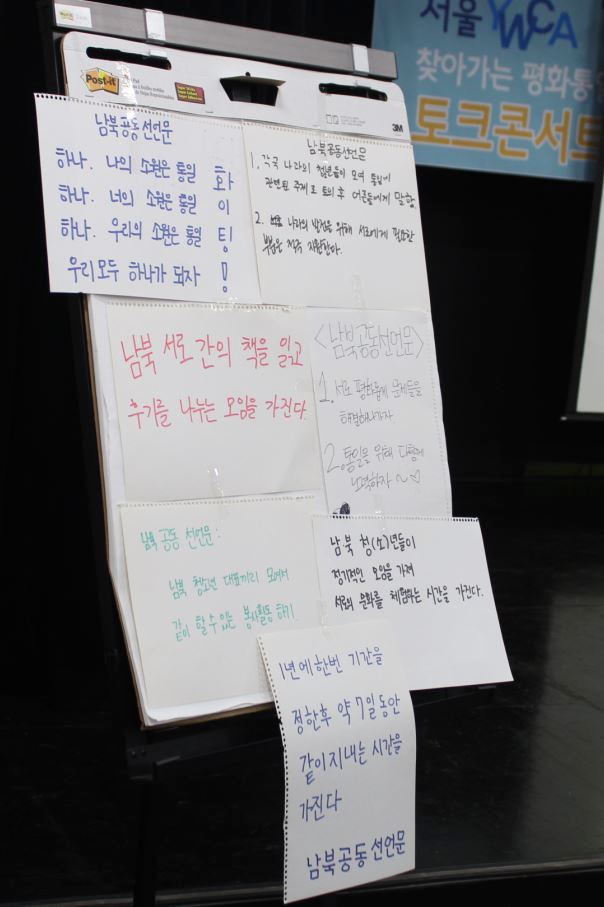 서울 YWCA
찾아가는 평화통일
토크콘서트
Post-it
3M
남북공동선언문
하나. 나의 소원은 통일
하나. 너의 소원은 통일
하나. 우리의 소원은 통일
우리모두 하나가 되자
화이팅!
남북공동선언문
1. 각국 나라의 청년들이 모여 통일에
관련된 주제로 토의 후 어른들에게 말함.
2. 나라의 발전을 위해 서로에게 필요한
부분은 적극 지원한다.
남북 서로 간의 책을 읽고
후기를 나누는 모임을 가진다.
<남북공동선언문>
1. 서로 평화롭게 문제들을
해결해나가자.
2. 통일을 위해 다함께
노력하자~♡
남북 공동 선언문:
남북 청소년 대표끼리 모여서
같이 할 수 있는 봉사활동 하기.
남북 청(소)년들이
정기적인 모임을 가져
서로의 문화를 체험하는 시간을 가진다.
1년에 한번 기간을
정한후 약 7일 동안
같이 지내는 시간을
가진다
남북공동선언문